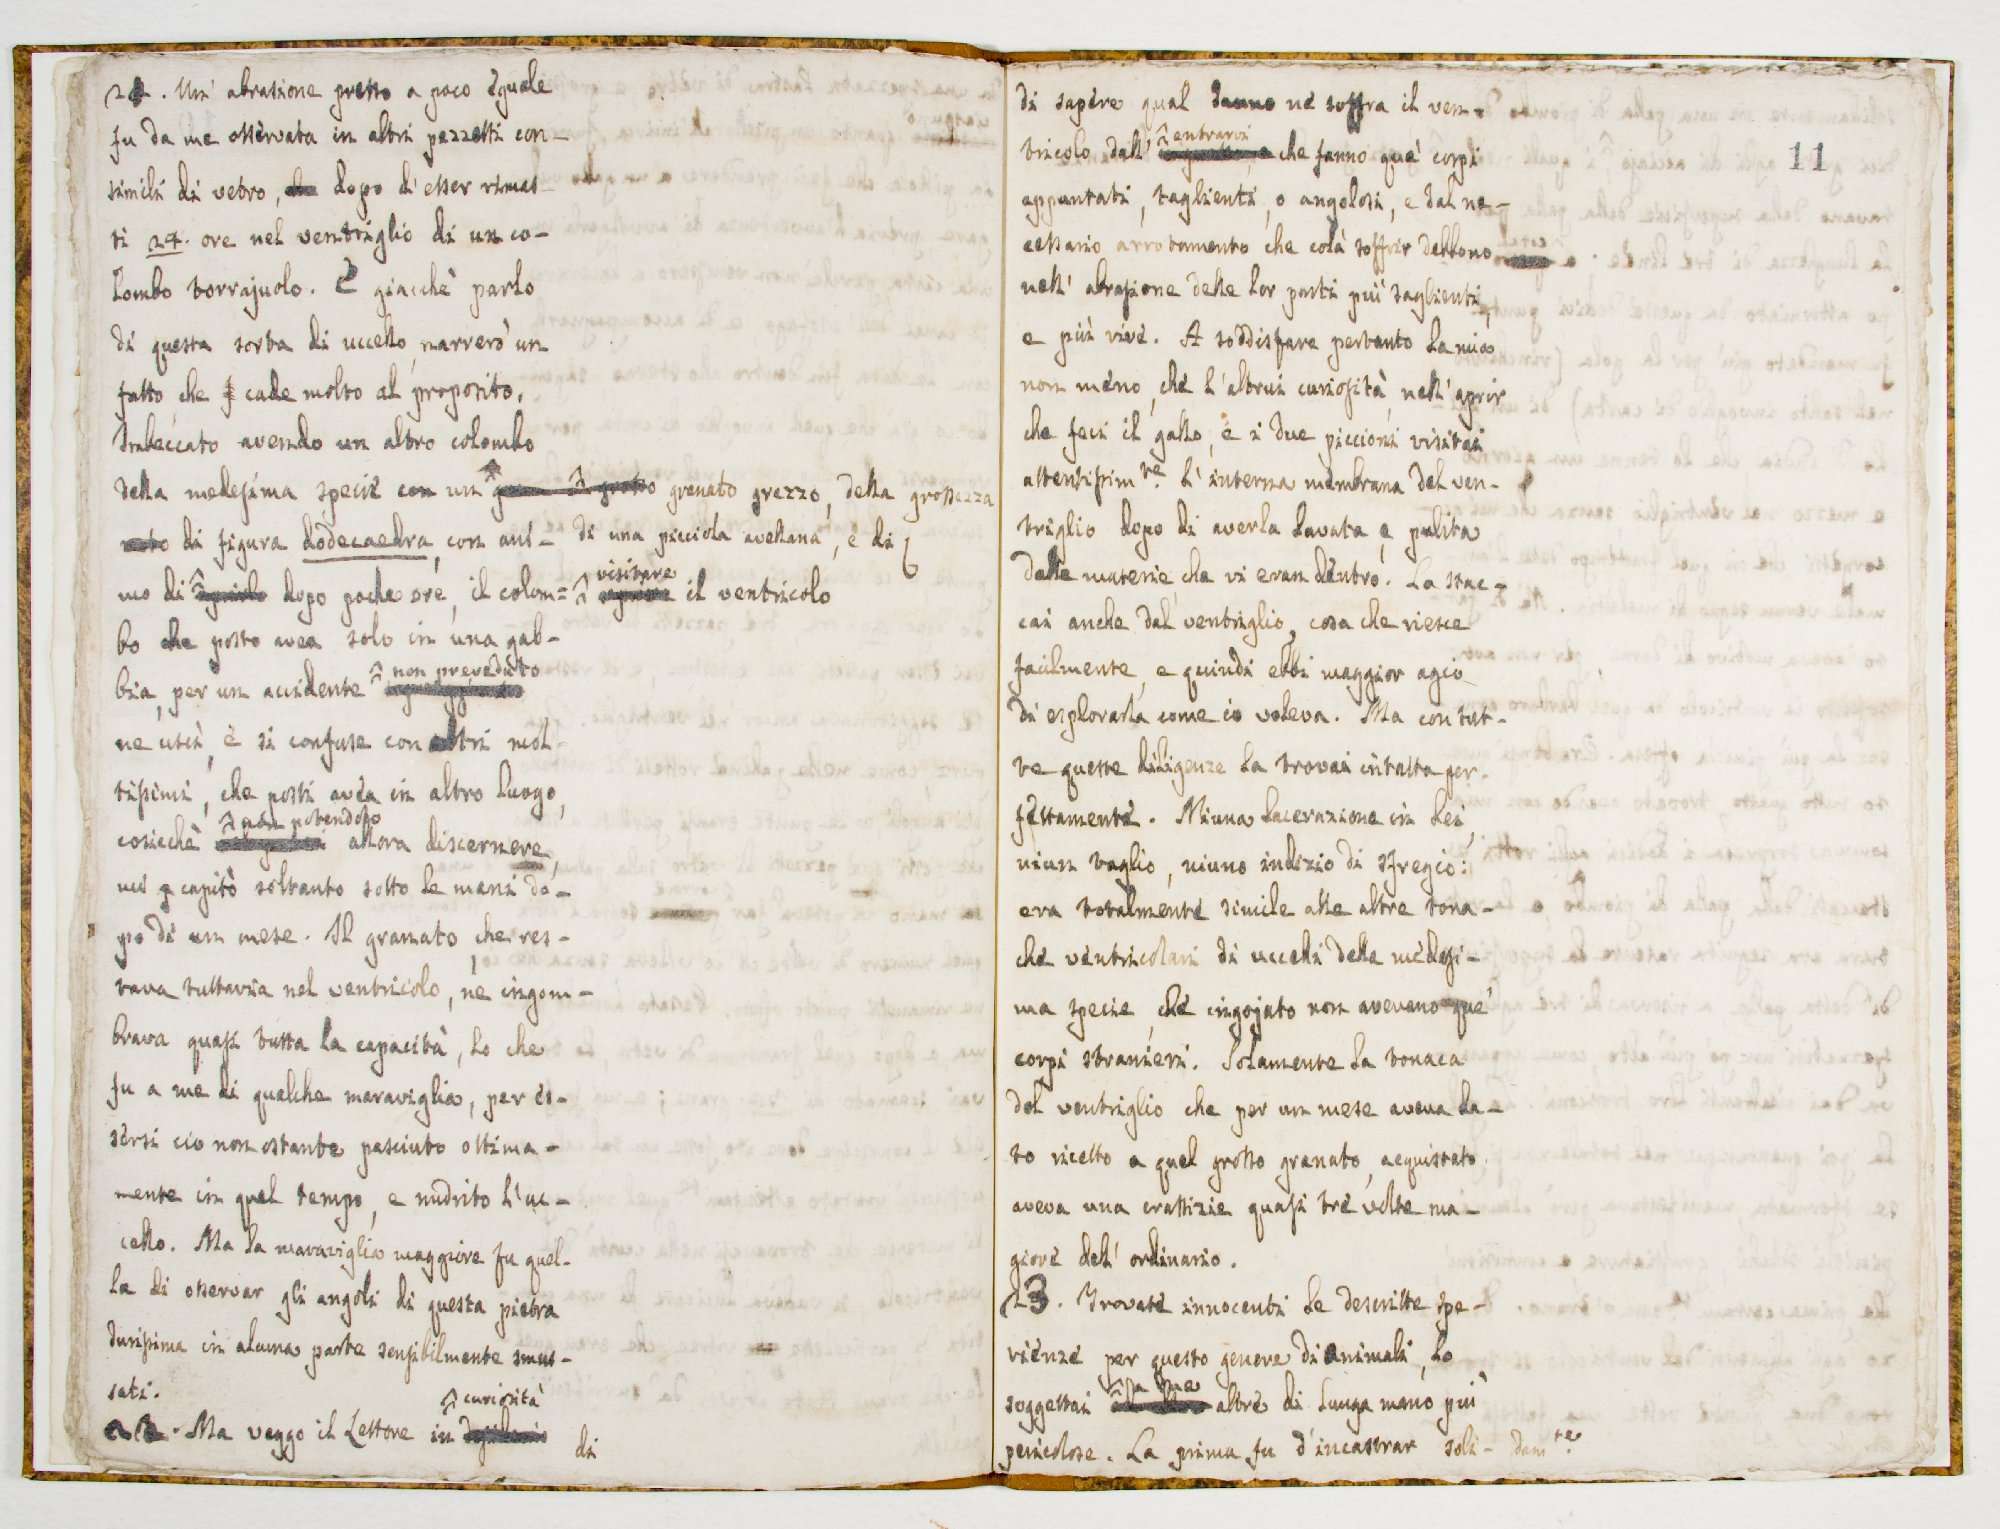 21. Un' abrasione presso a poco eguale
fu da me osservata in altri pezzetti con-
simili di vetro, dopo di esser rimas-
ti 24. ore nel ventriglio di un co-
lombo torrajuolo. E giacchè parlo
di questa sorta di uccello, narrerò un
fatto, che cade molto al proposito.
Imbeccato avendo un altro colombo
della medesima specie con un granato grezzo, della grossezza
di una picciola avellana, e di
di figura dodecaedra, con ani-
mo di dopo poche ore, il colom-
visitare
il ventricolo
bo che posto avea solo in una gab-
bia, per un accidente non preveduto
ne uscì, e si confuse con altri mol-
tissimi, che posti avea in altro luogo,
cosicchè non potendolo allora discernere,
mi capitò soltanto sotto le mani do-
po di un mese. Il granato, che res-
tava tuttavia nel ventricolo, ne ingom-
brava quasi tutta la capacità, lo che
fu a me di qualche maraviglia, per es-
sersi ciò non ostante pasciuto ottima-
mente in quel tempo, e nudrito l'uc-
cello. Ma la maraviglia maggiore fu quel-
la di osservar gli angoli di questa pietra
durissima in alcuna parte sensibilmente smus-
sati.
curiosità
22. Ma veggo il Lettore in
di
11
di sapere qual danno ne soffra il ven-
tricolo dall' entrarvi che fanno que' corpi
appuntati, taglienti, o angolosi, e dal ne-
cessario arrotamento che colà soffrir debbono
nell' abrasione delle lor parti più taglienti,
e più vive. A soddisfare pertanto la mia
non meno, che l'altrui curiosità, nell' aprir
che feci il gallo, e i due piccioni visitai
attentissim.te l' interna membrana del ven-
triglio dopo di averla lavata, e pulita
dalle materie, che vi eran dentro. La stac-
cai anche dal ventriglio, cosa che riesce
facilmente, e quindi ebbi maggior agio
di esplorarla come io voleva. Ma con tut-
te queste diligenze la trovai intatta per-
fettamente. Niuna lacerazione in lei,
niun taglio, niuno indizio di sfregio:
era totalmente simile alle altre tona-
che ventricolari di uccelli della medesi-
ma specie, che ingojato non avevano que'
corpi stranieri. Solamente la tonaca
del ventriglio che per un mese aveva da-
to ricetto a quel grosso granato, acquistato
aveva una crassizie quasi tre volte ma-
giore dell' ordinario.
23. Trovate innocenti le descritte spe-
rienze per questo genere di animali, lo
soggettai a due altre di lunga mano più
pericolose. La prima fu d'incastrar soli- dam.te